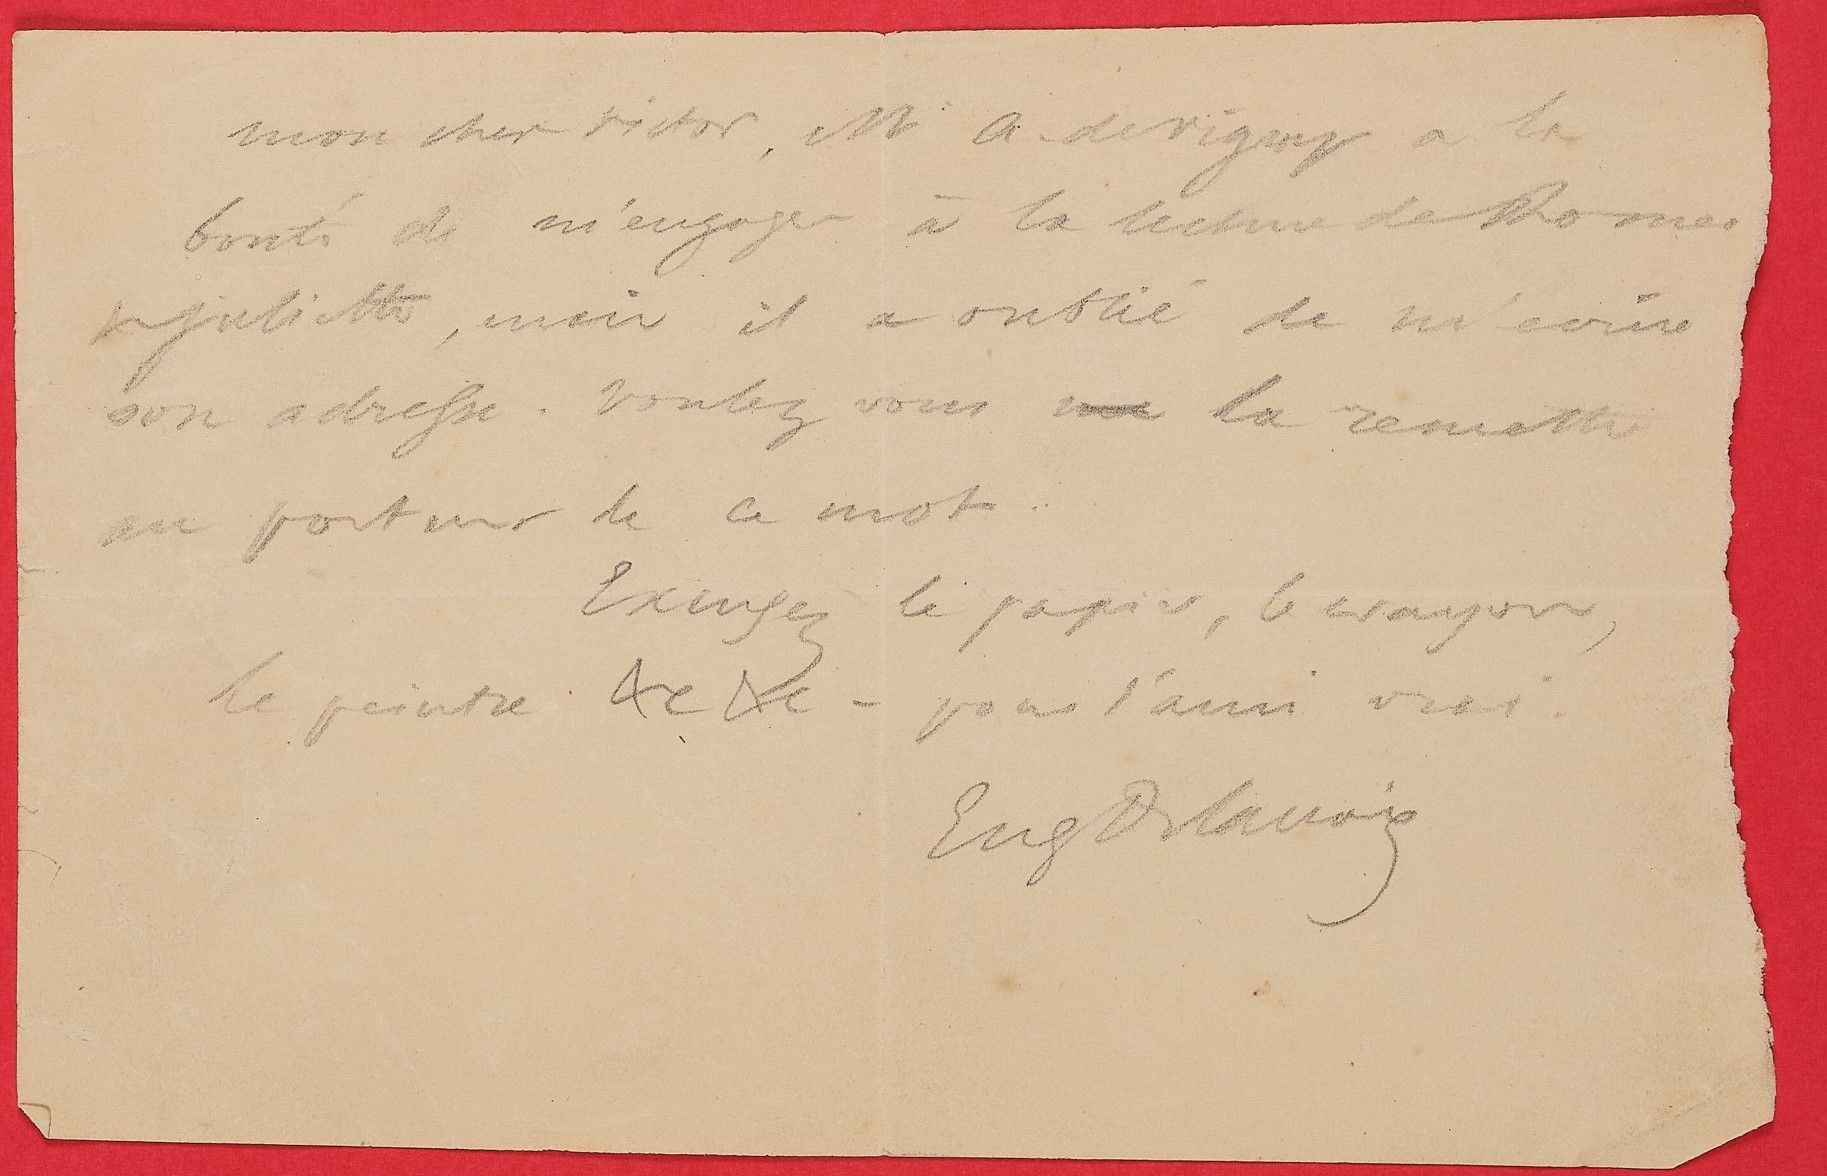 mon cher victor, Mr A. de vigny a la
bonté de m'engager à la lecture de Romeo
et juliette, mais il a oublié de m'écrire
son adresse. Voulez vous la remettre
au porteur de ce mot.
Excusez le papier, le crayon,
le peintre &c &c - pour l'ami vrai.
Eug Delacroix